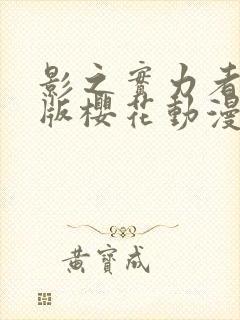 影之實力者
版櫻花動漫
黃寶成